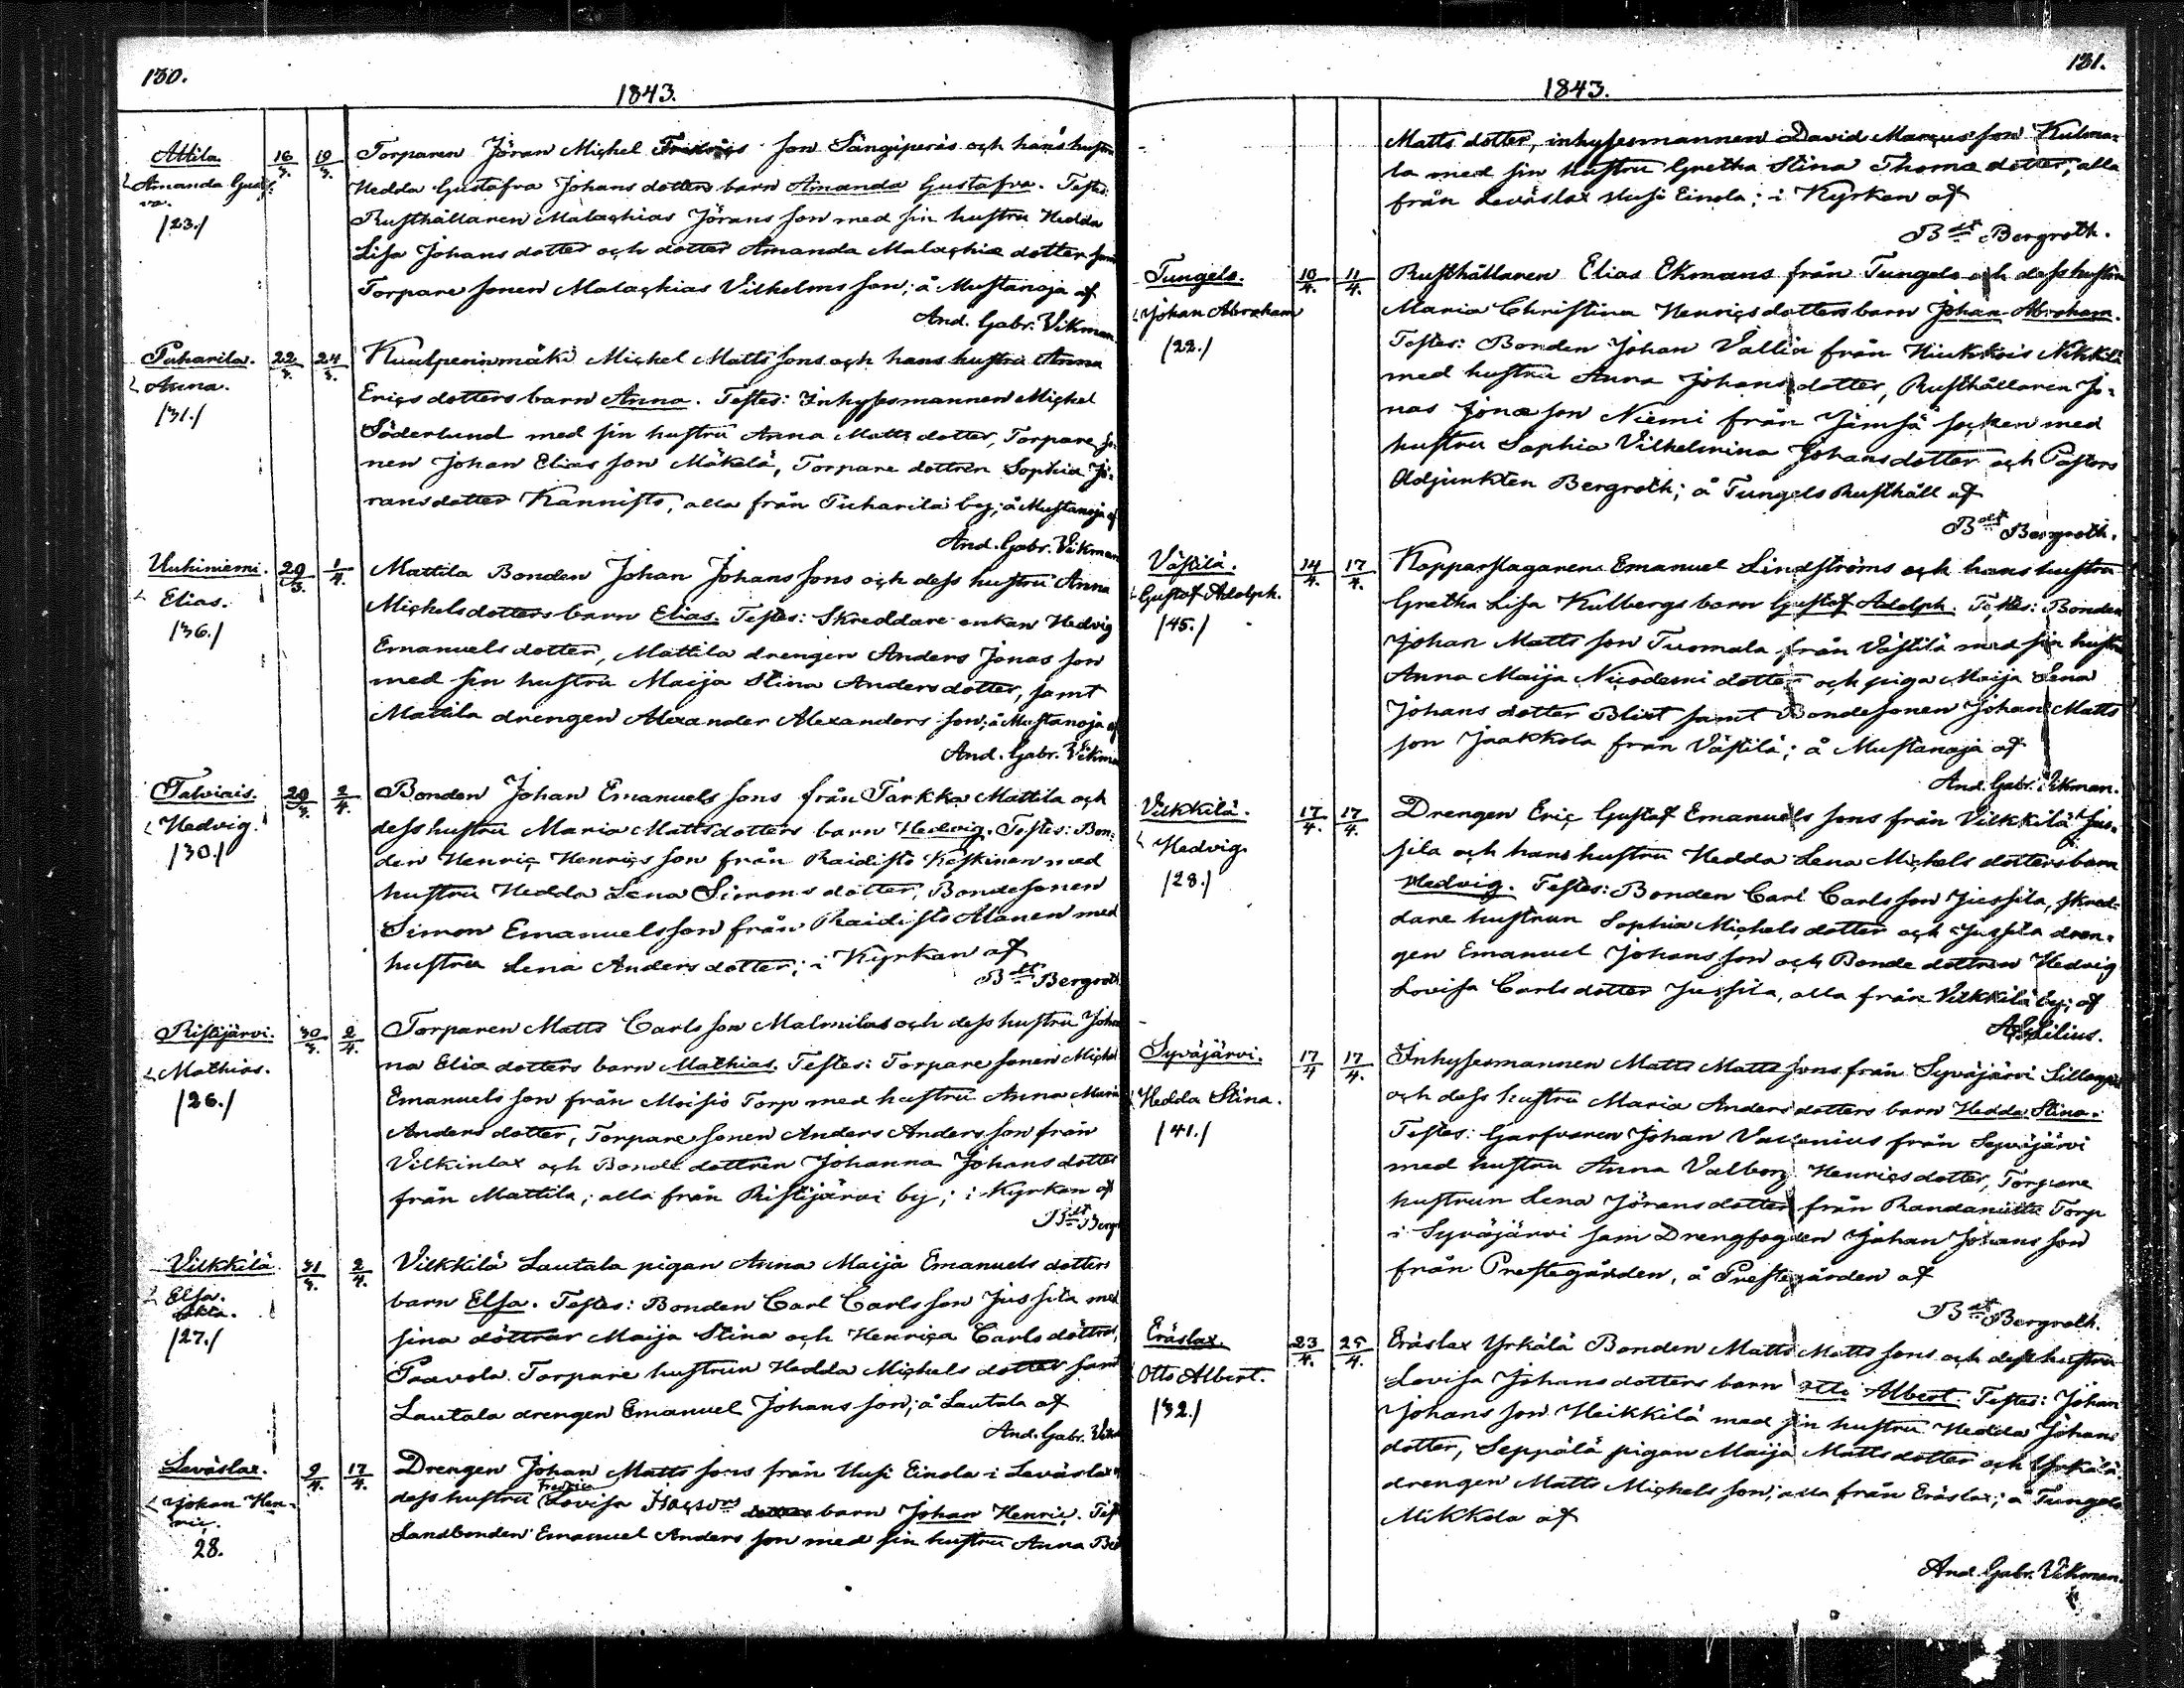 130.
1843.
Attila
Amanda Gustafva.
/23./
16/3.
19/3.
Torparen Jöran Michel son Sängiperäs och hans hustru
Hedda Gustafva Johans dotters barn Amanda Gustafva. Testes:
Rusthållaren Malachias Jörans son med sin hustru Hedda
Lisa Johans dotter och dotter Amanda Malachiæ dotter samt
Torpare sonen Malachias Vilhelms son; å Mustanoja af
And. Gabr. Vikman
Puharila.
Anna.
/31./
22/3.
24/3.
Michel Matts sons och hans hustru Anna
Erics dotters barn Anna. Testes: Inhysesmannen Michel
Söderlund med sin hustru Anna Matts dotter, Torpare so-
nen Johan Elias son Mäkelä, Torpare dottren Sophia Jö-
rans dotter Kannisto, alla från Puharila by; å Mustanoja af
And. Gabr. Vikman
Uuhiniemi.
Elias.
/36./
29/3.
1/4.
Mattila Bonden Johan Johans sons och dess hustru Anna
Michelsdotters barn Elias. Testes: Skreddare enkan Hedvig
Emanuels dotter, Mattila drengen Anders Jonas son
med sin hustru Maija Stina Andersdotter, samt
Mattila drengen Alexander Alexanders son; å Mustanoja af
And. Gabr. Vikman
Talviais.
Hedvig.
/30./
29/3.
2/4.
Bonden Johan Emanuels sons från Tarkka Mattila och
dess hustru Maria Mattsdotters barn Hedvig. Testes: Bon-
den Henric Henrics son från Raidisto Keskinen med
hustru Hedda Lena Simons dotter, Bondesonen
Simon Emanuelsson från Raidisto Alanen med
hustru Lena Anders dotter; i Kyrkan af
Bdt Bergroth
Ristijärvi.
Mathias.
/26./
30/3.
2/4.
Torparen Matts Carls son Malmilas och dess hustru Johan
na Eliæ dotters barn Mathias. Testes: Torpare sonen Michel
Emanuels son från Moisio Torp med hustru Anna Maria
Anders dotter, Torpare sonen Anders Anders son från
Vilkinlax och Bonde dottren Johanna Johans dotter
från Mattila; alla från Ristijärvi by; i Kyrkan af
Bdt Berg
Vilkkilä.
Elsa.
/27./
31/3.
2/4.
Vilkkilä Lautala pigan Anna Maija Emanuels dotters
barn Elsa. Testes: Bonden Carl Carls son Jussila med
sina döttrar Maija Stina och Henrica Carls döttrar,
Paavola Torpare hustrun Hedda Michels dotter samt
Lautala drengen Emanuel Johans son; å Lautala af
And. Gabr. Vikm
Leväslax.
Johan Hen-
ric.
28.
9/4.
17/4.
Drengen Johan Matts sons från Uusi Einola i Leväslax
Fredrica
dess hustru Lovisa barn Johan Henric. Test
Landbonden Emanuel Anders son med sin hustru Anna
131.
1843.
Matts dotter, inhysesmannen David Marcus son Kulma-
la med sin hustru Gretha Stina Thomæ dotter; alla
från Leväslax Uusi Einola; i Kyrkan af
Bdt Bergroth.
Tungels.
Johan Abraham
/22./
10/4.
11/4.
Rusthållaren Elias Ekmans från Tungels och dess hustru
Maria Christina Henrics dotters barn Johan Abraham.
Testes: Bonden Johan Vallin från Hiukkois Nikkilä
med hustru Anna Johans dotter, Rusthållaren Jo-
nas Jonæ son Niemi från Jämsä socken med
hustru Sophia Vilhelmina Johansdotter och Pastors
Adjunkten Bergroth; å Tungels Rusthåll af
Bdt Bergroth.
Västilä.
Gustaf Adolph.
/45./
14/4.
17/4.
Kopparslagaren Emanuel Lindströms och hans hustru
Gretha Lisa Kulbergs barn Gustaf Adolph. Testes: Bonden
Johan Matts son Tuomala från Västilä med sin hustru
Anna Maija Nicodemi dotter och piga Maija Lena
Johans dotter Blixt samt Bondesonen Johan Matts
son Jaakkola från Västilä; å Mustanoja af
And. Gabr. Vikman.
Vilkkilä.
Hedvig.
/28./
17/4.
17/4.
Drengen Eric Gustaf Emanuels sons från Vilkkilä Jus-
sila och hans hustru Hedda Lena Michels dotters barn
Hedvig. Testes: Bonden Carl Carls son Jussila, skred-
dare hustrun Sophia Michels dotter och Jussila dren-
gen Emanuel Johans son och Bonde dottren Hedvig
Lovisa Carls dotter Jussila, alla från Vilkkilä by; af
Lilius.
Syväjärvi.
Hedda Stina.
/41./
17/4
17/4.
Inhysesmannen Matts Matts sons från Syväjärvi
och dess hustru Maria Anders dotters barn Hedda Stina.
Testes: Garfvaren Johan från Syväjärvi
med hustru Anna Valborg Henricsdotter, Torpare
hustrun Lena Jörans dotter från Randaniitu Torp
i Syväjärvi sam Drengfogden Johan Johans son
från Prestegården, å Prestegården af
Bdt Bergroth.
Eräslax.
Otto Albert.
/32./
23/4.
25/4.
Eräslax Yrkälä Bonden Matts Matts sons och dess hustru
Lovisa Johans dotters barn Otto Albert. Testes: Johan
Johans son Heikkilä med sin hustru Hedda Johans
dotter, Seppälä pigan Maija Matts dotter och Yrkälä
drengen Matts Michels son; alla från Eräslax; å Tungels
Mikkola af
And. Gabr. Vikman.